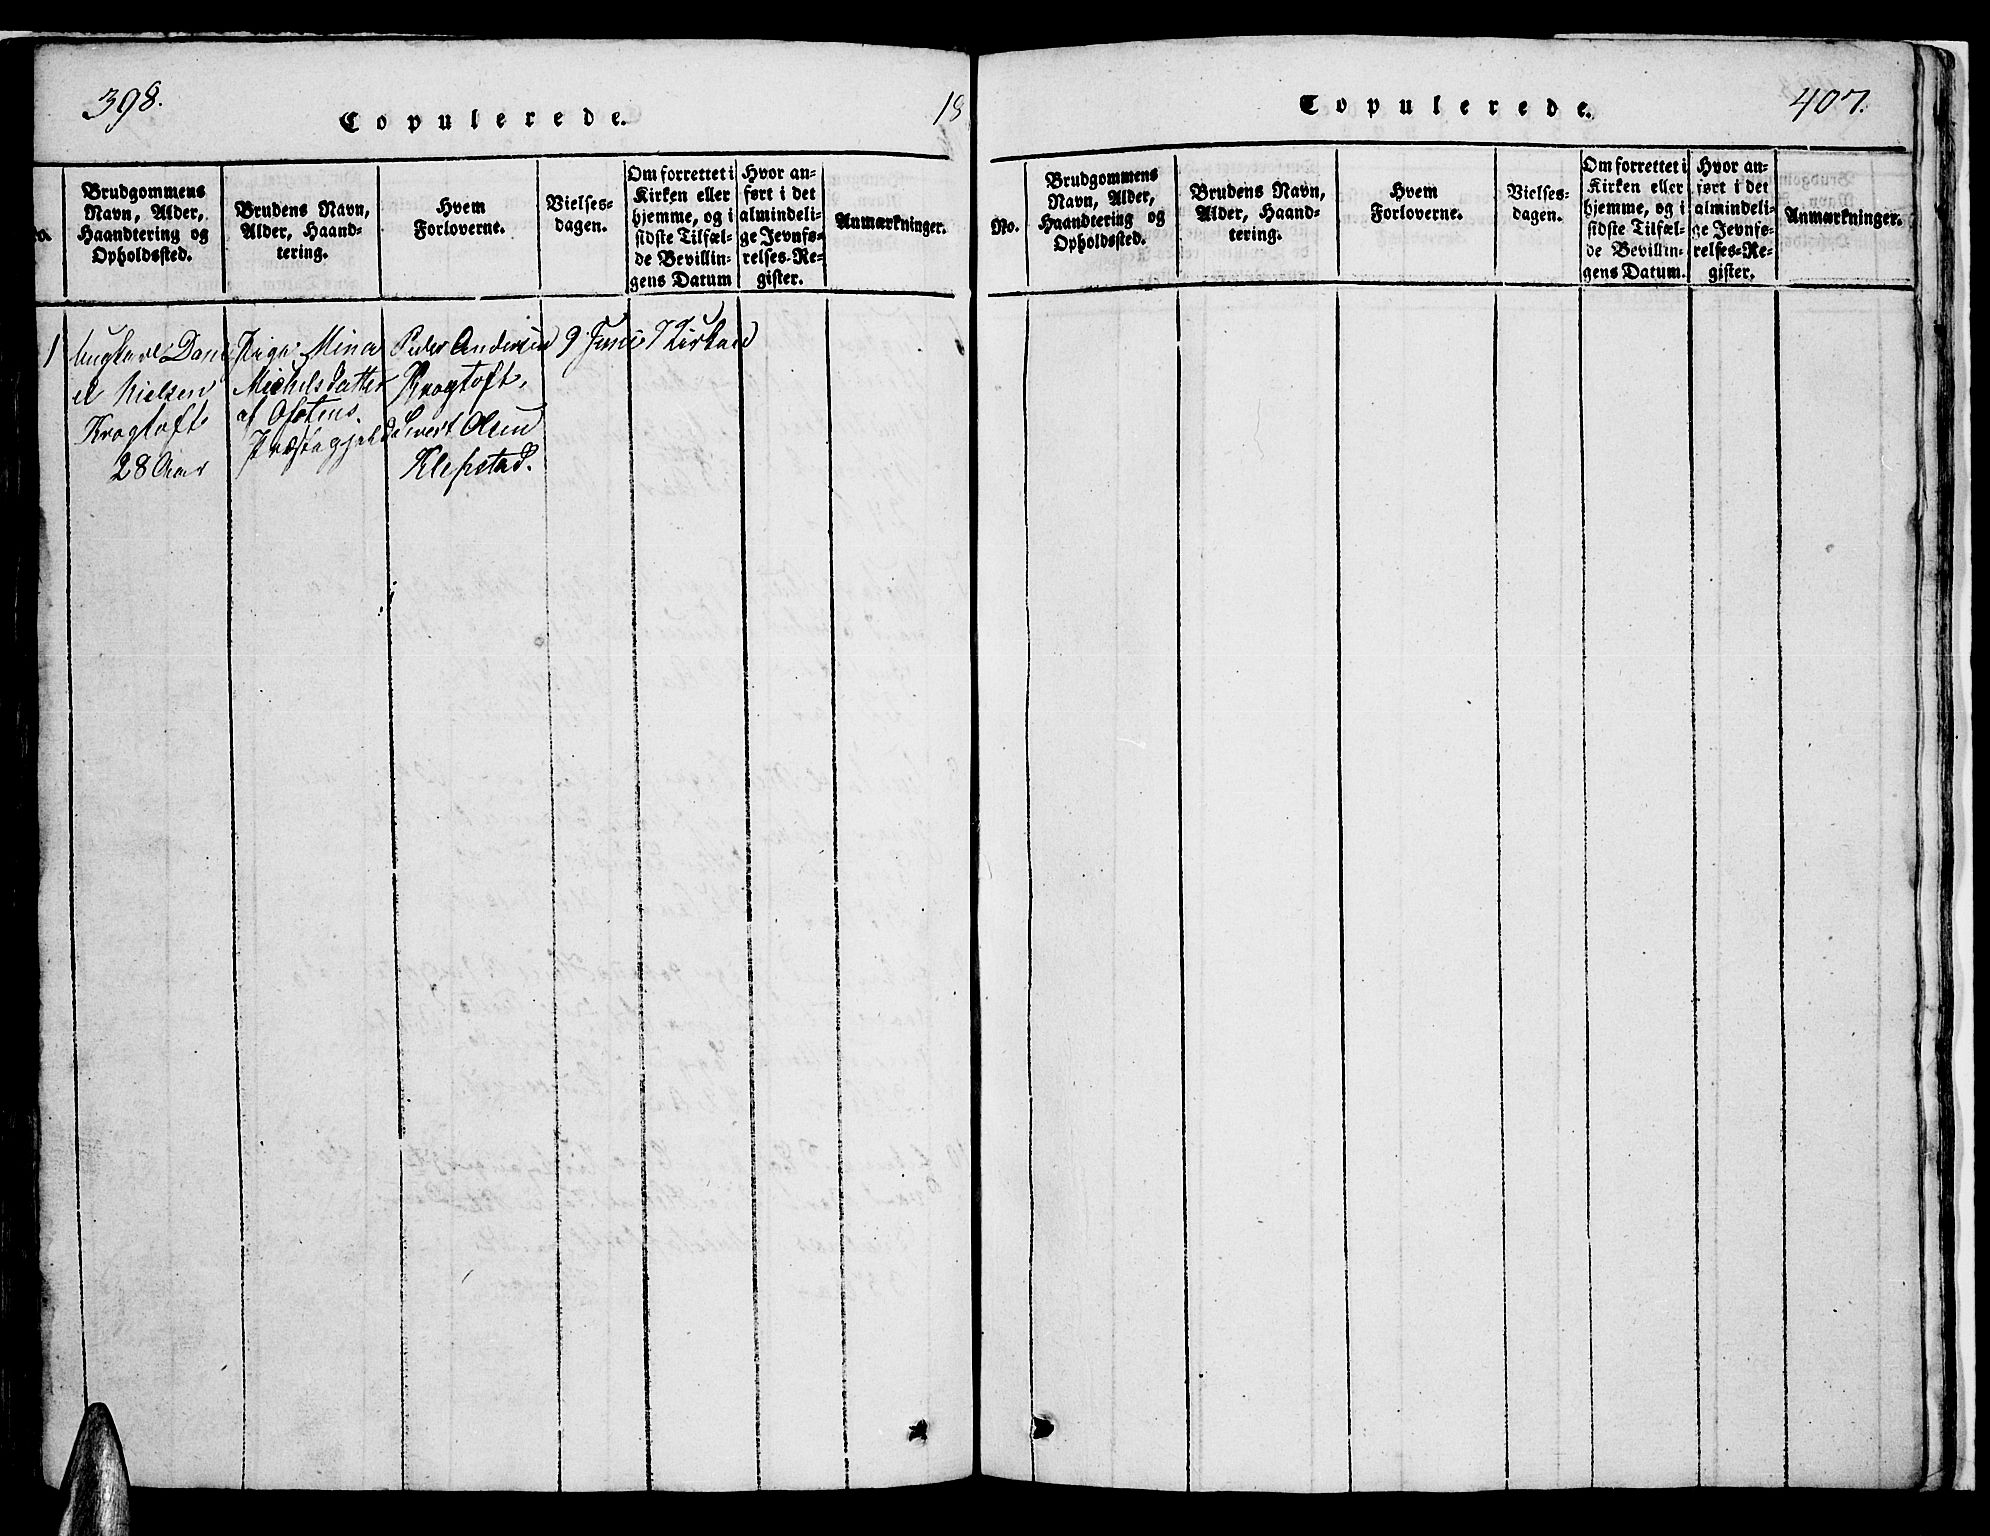 398.
Copulerede.
18
No.
Brudgommens
Navn, Alder,
Haandtering og
Opholdssted.
Brudens Navn,
Alder, Haand-
tering.
Hvem
Forloverne.
Vielses-
dagen.
Om forrettet i
Kirken eller
hjemme, og i
sidste Tilfæl-
de Bevillin-
gens Datum
Hvor an-
ført i det
almindeli-
ge Jevnfø-
relses-Re-
gister.
Anmærkninger.
1
Ungkarl Dani
el Nielsen
Krogtoft
28 Aar
Pige Mina
Michelsdatter
af Ofotens
Præstegjeld
Peder Andersen
Krogtoft,
Sivert Olsen
Klepstad.
9 Juni
I Kirken
407.
Copulerede.
No.
Brudgommens
Navn, Alder,
Haandtering og
Opholdssted.
Brudens Navn,
Alder, Haand-
tering.
Hvem
Forloverne.
Vielses-
dagen.
Om forrettet i
Kirken eller
hjemme, og i
sidste Tilfæl-
de Bevillin-
gens Datum.
Hvor an-
ført i det
almindeli-
ge Jevnfø-
relses-Re-
gister.
Anmærkninger.